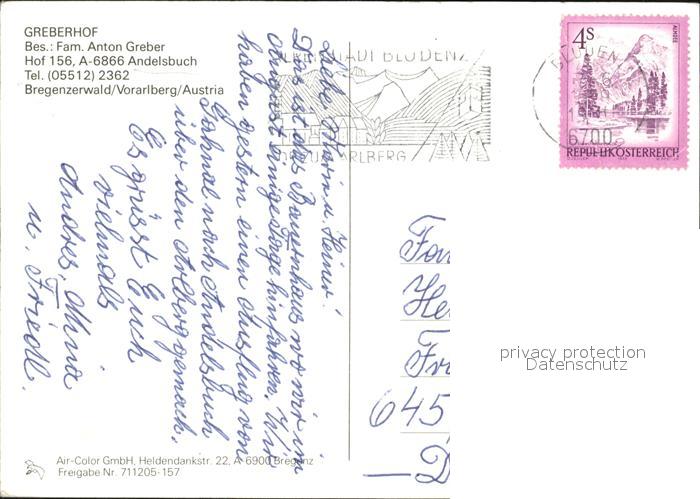 GREBERHOF
Bes.: Fam. Anton Greber
Hof 156, A-6866 Andelsbuch
Tel. (05512) 2362
Bregenzerwald/Vorarlberg/Austria
ALPENSTADT BLUDENZ
VORARLBERG
BLUDENZ
6700
4S
ALMSEE
REPUBLIK ÖSTERREICH
Liebe u. Heiner!
Das ist das Bauernhaus wo wir im
August einige Tage hinfahren. Wir
haben gestern einen Ausflug von
nach Andelsbuch
über den Arlberg gemach.
Es grüsst Euch
vielmals
Andres, Anna
u. Friedl.
Fa
He
Fr
645
D
privacy protection
Datenschutz
Air-Color GmbH, Heldendankstr. 22, A-6900 Bregenz
Freigabe Nr. 711205-157